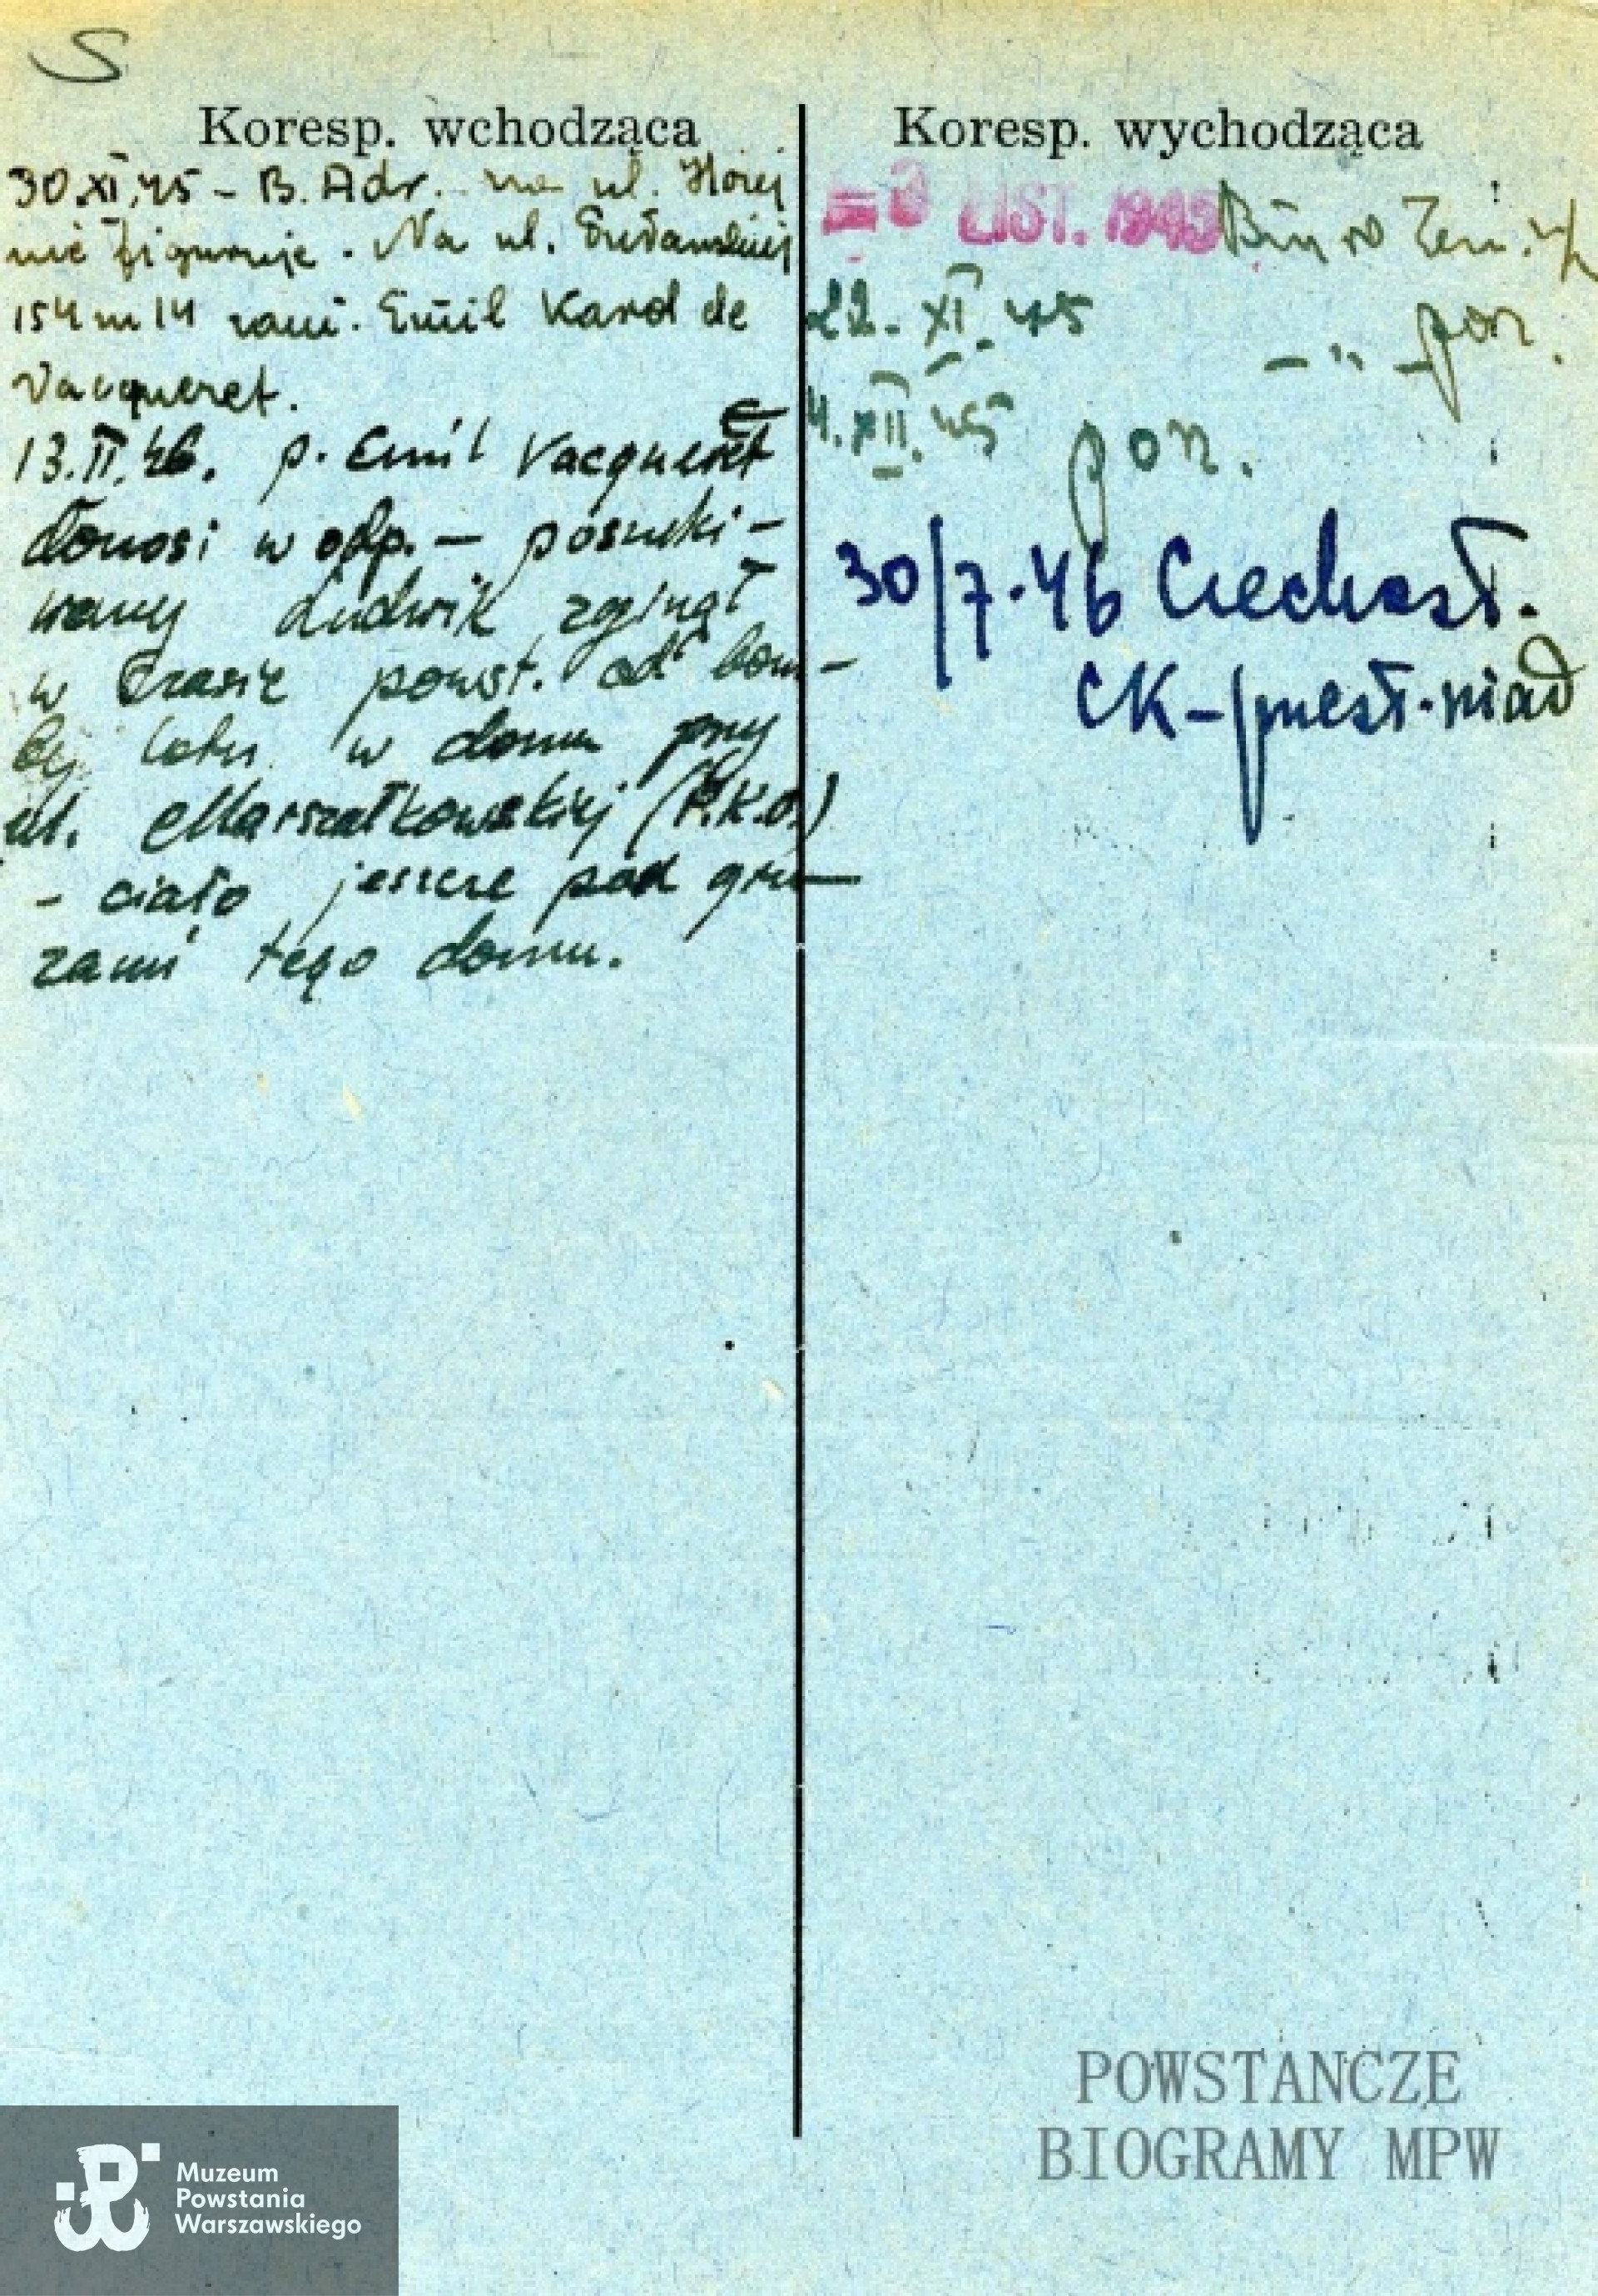 S
Koresp. wchodząca
30.XI.45 – B. Adr. na ul. Hożej
nie figuruje. Na ul.
154 m 14 zam. Emil Karol de
Vacqueret.
13.II.46. p. Emil Vacqueret
donosi w odp. – poszuki–
wany Ludwik zginął
w czasie powst. od bom–
by lotn. w domu przy
ul. Marszałkowskiej (P.K.O.)
– ciało jeszcze pod gru–
zami tego domu.
Koresp. wychodząca
= 3 LIST. 1945 Biuro
22. XI. 45 – " – pon.
4. XII. 45 pon.
30/7.46 Czechosł.
CK –
POWSTAŃCZE
BIOGRAMY MPW
Muzeum
Powstania
Warszawskiego